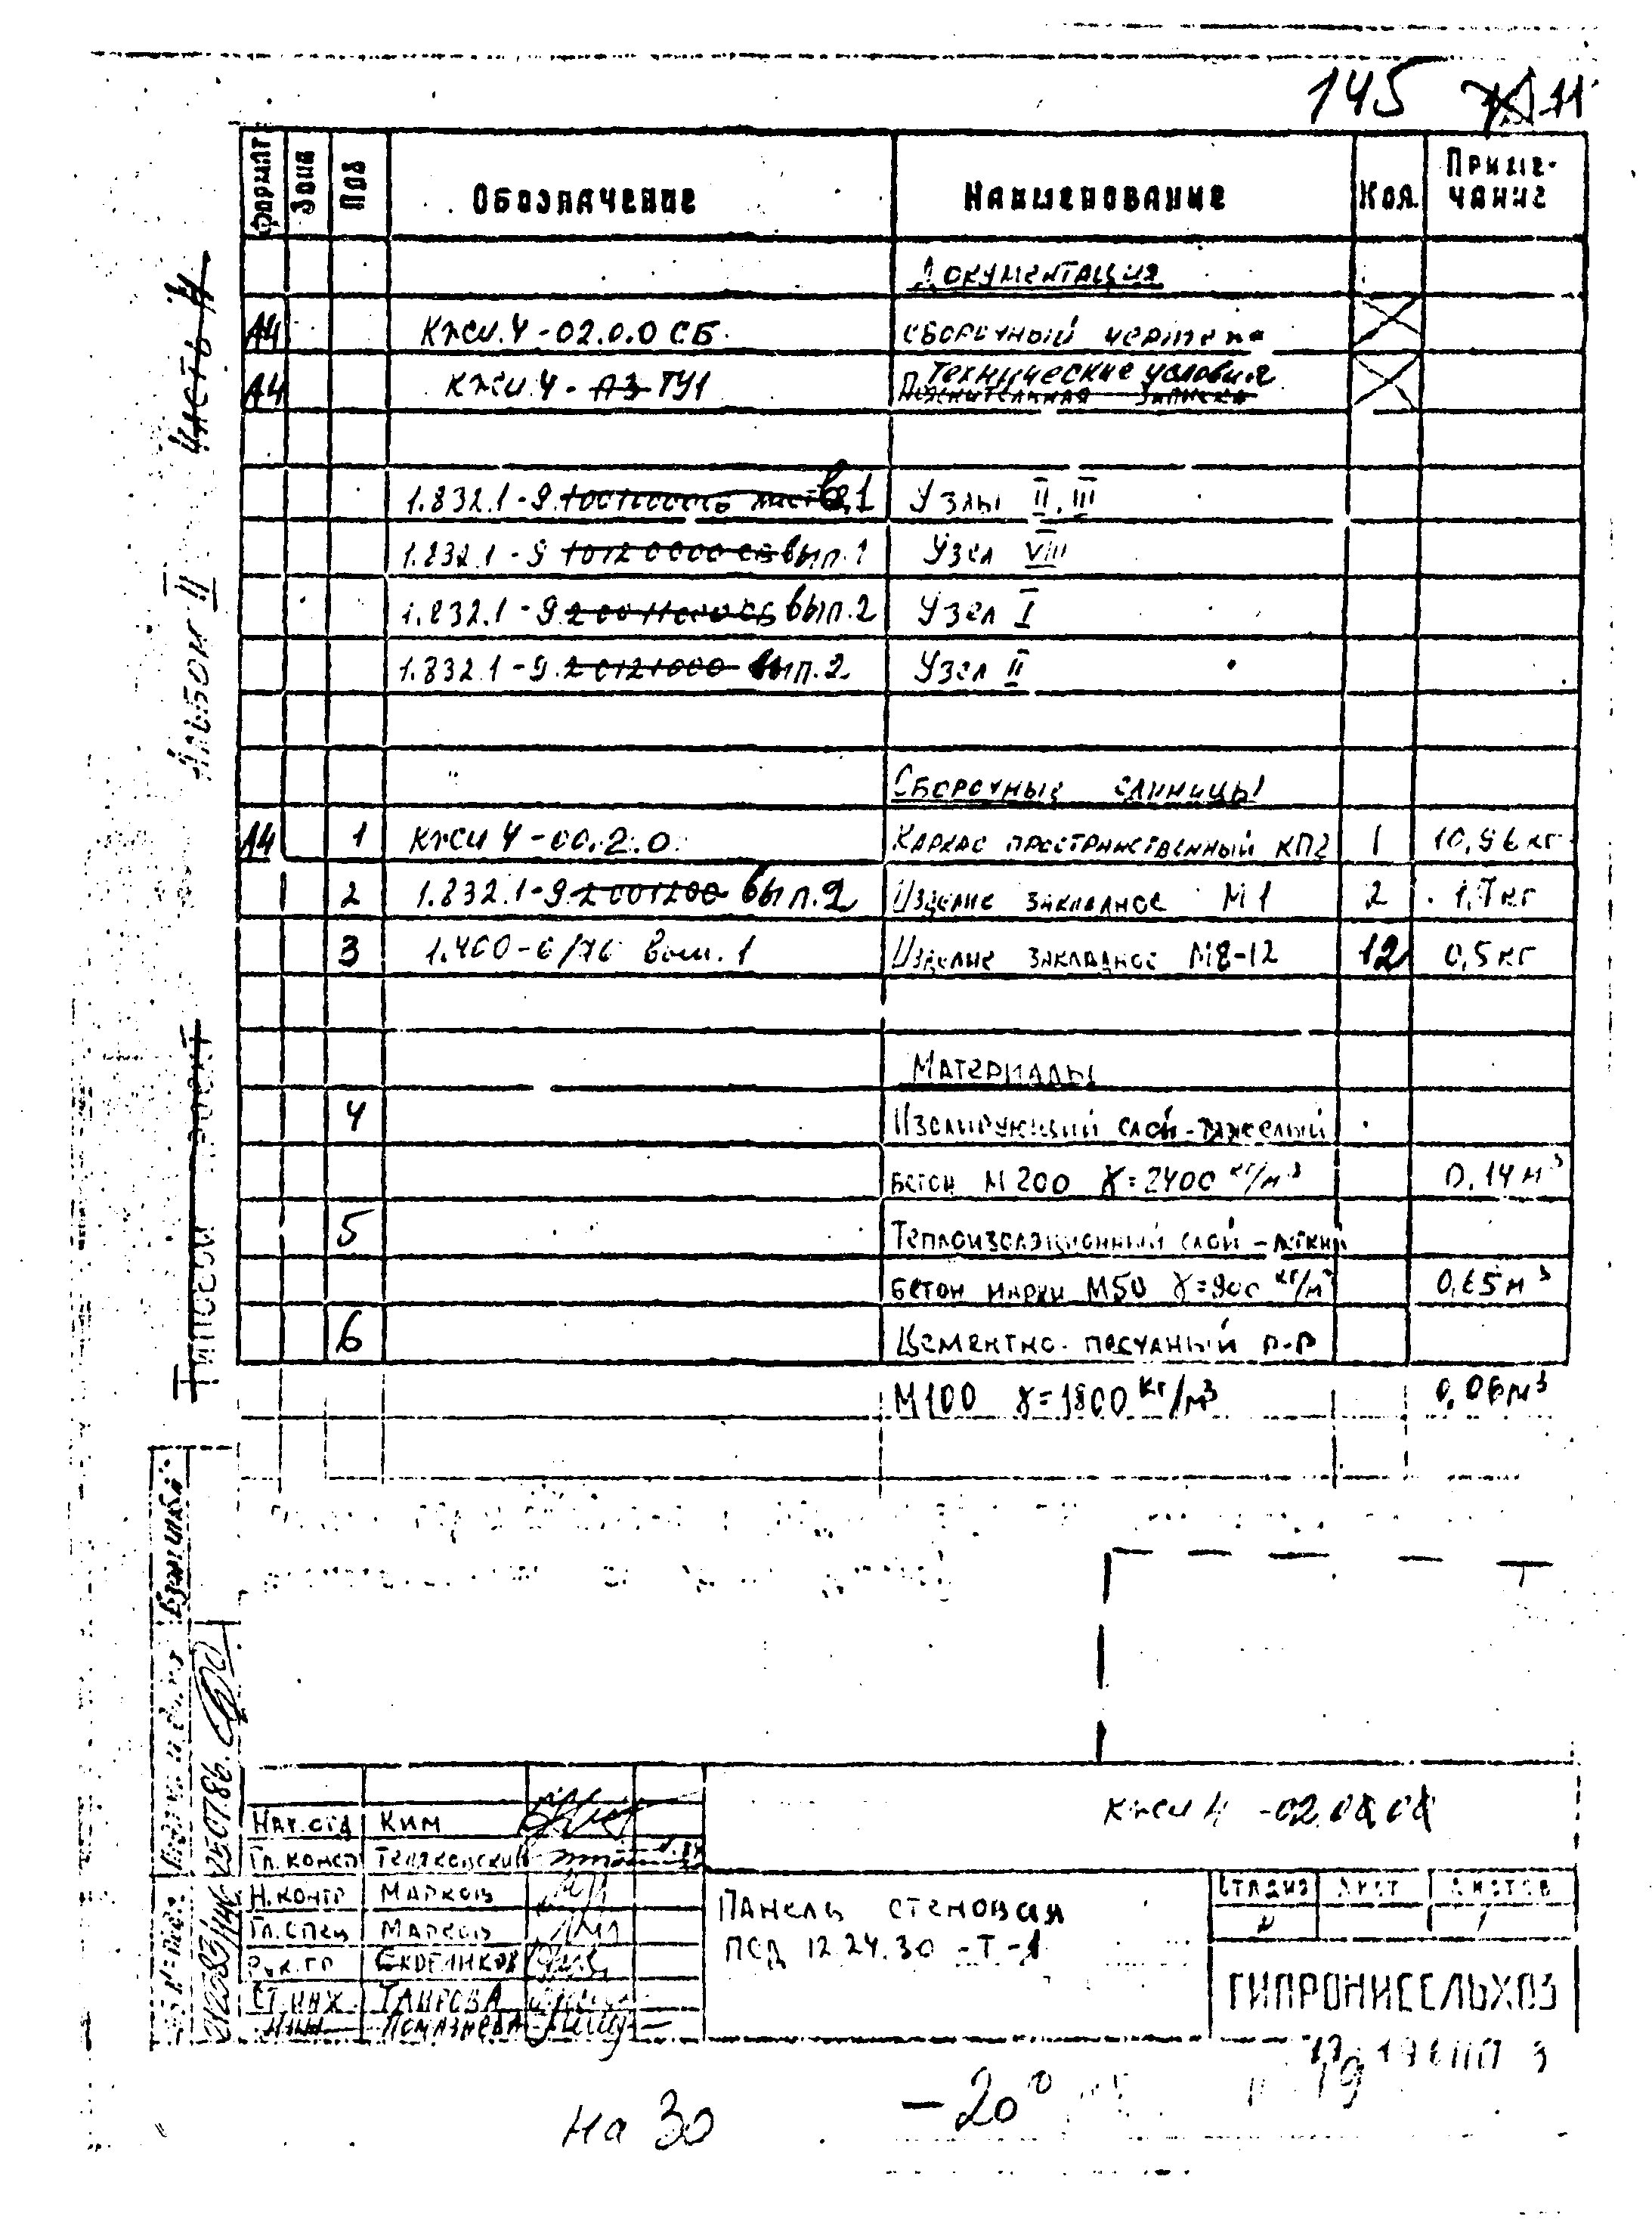 145 11
Формат Зона Поз Обозначение Наименование Кол. Примечание
Документация
А4 КЖИ.4-02.0.0 СБ Сборочный чертеж
А4 КЖИ.4-ПЗ ТУ1 Технические условия
Пояснительная записка
1.832.1-9 в.1 Узлы II, III
1.832.1-9 10120000 СБ вып.1 Узел VIII
1.832.1-9.20011000СБ вып.2 Узел I
1.832.1-9.20121000 вып.2 Узел II
Сборочные единицы
А4 1 КЖИ 4-00.2.0 Каркас пространственный КП2 1 10,96 кг
2 1.832.1-9.2001200 вып.2 Изделие закладное М1 2 1,7 кг
3 1.400-6/76 вып.1 Изделие закладное М8-12 12 0,5 кг
Материалы
4 Изолирующий слой-тяжелый
бетон М200 γ=2400 кг/м³ 0,14 м³
5 Теплоизоляционный слой - легкий
бетон марки М50 γ=900 кг/м³ 0,65 м³
6 Цементно-песчаный р-р
М100 γ=1800 кг/м³ 0,06 м³
Альбом II Часть 4
Типовой проект
Взам инв
25.07.86.
КЖИ 4-02.0.0
Нач.отд Ким
Гл. консп Теляковский
Н.контр Марков
Гл.спец Марков
Рук.гр
Ст.инж Таирова
Инж
Панель стеновая
ПСД 12.24.30 -Т-1
Стадия Лист Листов
1
ГИПРОНИСЕЛЬХОЗ
19
На 30 -20°